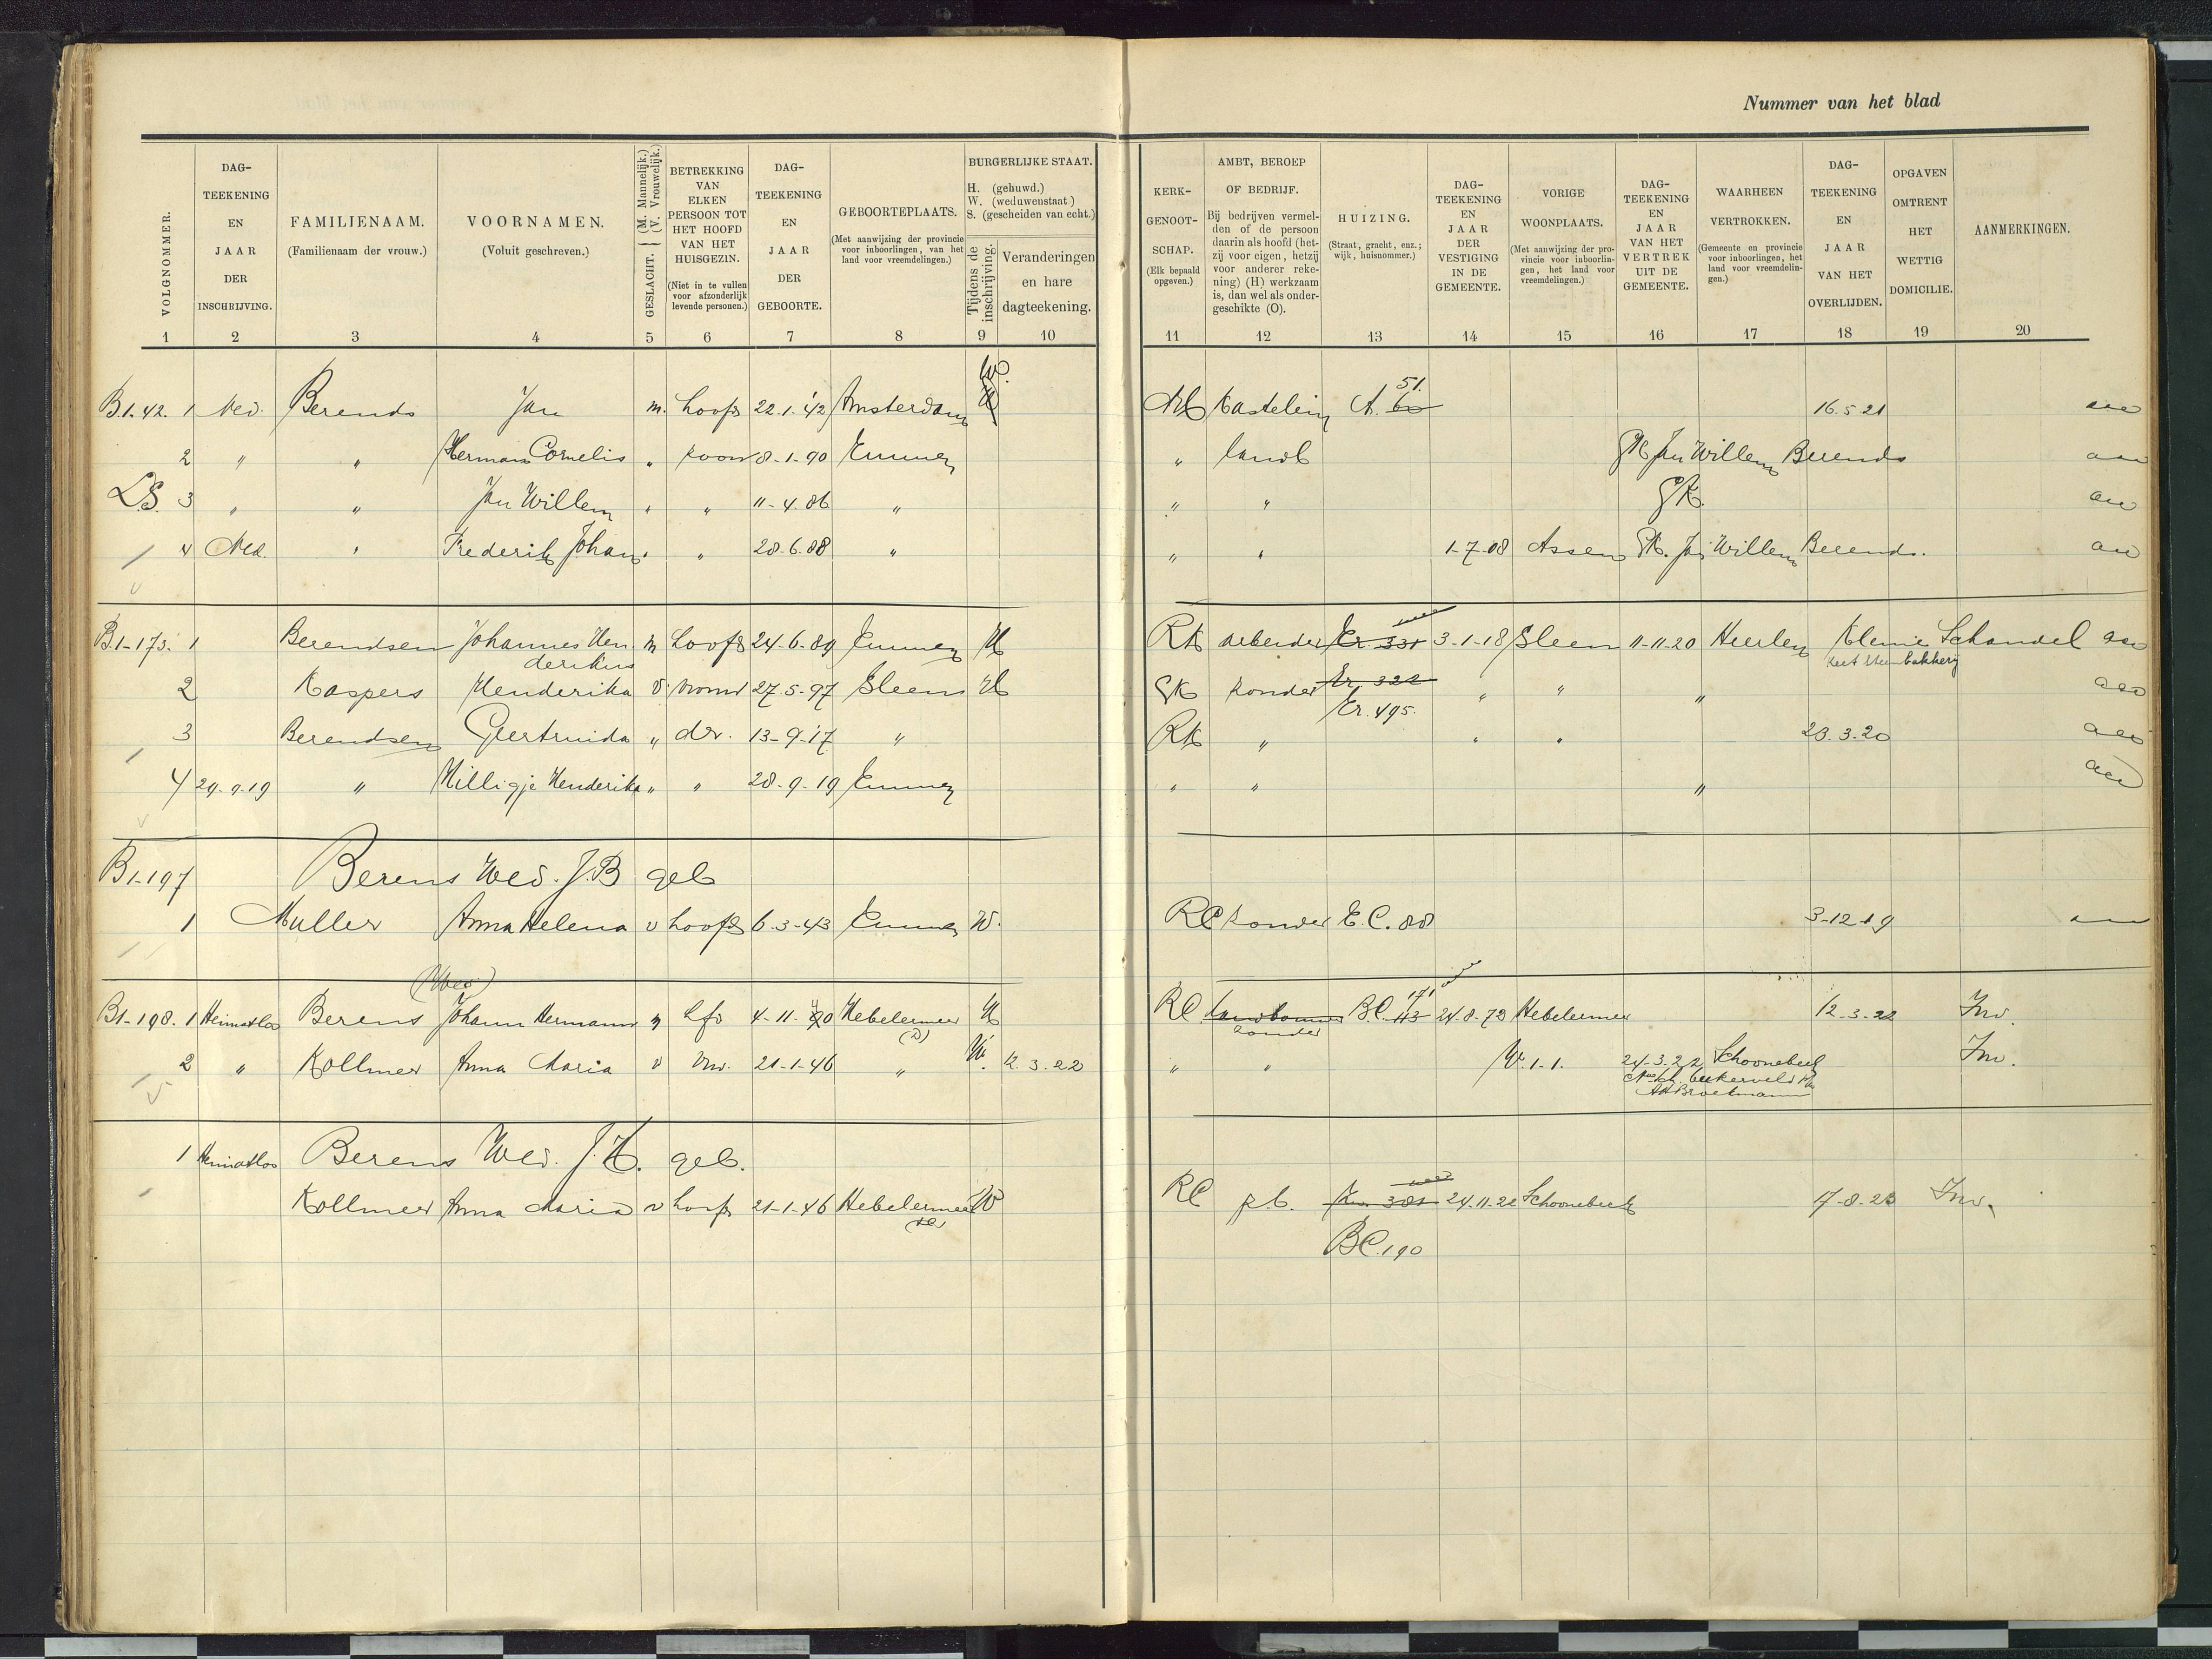 Nummer van het blad
VOLGNOMMER. DAG-TEEKENING EN JAAR DER INSCHRIJVING. FAMILIENAAM. (Familienaam der vrouw.) VOORNAMEN. (Voluit geschreven.) GESLACHT. (M. Mannelijk.) (V. Vrouwelijk.) BETREKKING VAN ELKEN PERSOON TOT HET HOOFD VAN HET HUISGEZIN. (Niet in te vullen voor afzonderlijk levende personen.) DAG-TEEKENING EN JAAR DER GEBOORTE. GEBOORTEPLAATS. (Met aanwijzing der provincie voor inboorlingen, van het land voor vreemdelingen.) BURGERLIJKE STAAT. H. (gehuwd.) W. (weduwenstaat) S. (gescheiden van echt.) Tijdens de inschrijving. Veranderingen en hare dagteekening. KERK-GENOOT-SCHAP. (Elk bepaald opgeven.) AMBT, BEROEP OF BEDRIJF. Bij bedrijven vermelden of de persoon daarin als hoofd (hetzij voor eigen, hetzij voor anderer rekening) (H) werkzaam is, dan wel als ondergeschikte (O). HUIZING. (Straat, gracht, enz.; wijk, huisnommer.) DAG-TEEKENING EN JAAR DER VESTIGING IN DE GEMEENTE. VORIGE WOONPLAATS. (Met aanwijzing der provincie voor inboorlingen, het land voor vreemdelingen.) DAG-TEEKENING EN JAAR VAN HET VERTREK UIT DE GEMEENTE. WAARHEEN VERTROKKEN. (Gemeente en provincie voor inboorlingen, het land voor vreemdelingen.) DAG-TEEKENING EN JAAR VAN HET OVERLIJDEN. OPGAVEN OMTRENT HET WETTIG DOMICILIE. AANMERKINGEN.
1 2 3 4 5 6 7 8 9 10 11 12 13 14 15 16 17 18 19 20
W. 51.
B1.42. 1 Ned. Berends Jan m. hoofd 22.1.'42 Amsterdam H NH Kastelein A. 60 16.5 21
2 " " Herman Cornelis " zoon 8-1-90 Emmen " landb GK Jan Willem Berends
LS. 3 " " Jan Willem " " 11-4.86 " " " GK.
4 Ned. " Frederik Johan " " 28-6.88 " " " 1-7-08 Assen GK. Jan Willem Berends.
B.1-175. 1 Berendsen Johannes Hen m hoofd 24-6-89 Emmen H RK arbeider Er. 331 3-1-18 Sleen 11-11-20 Heerlen Kleine Schandel
derikus Keet steenbakkerij
2 Kaspers Henderika v. vrouw 27-5-97 Sleen H GK zonder Er. 322 " " "
Er. 495.
3 Berendsen Geertruida " dr. 13-9-17 " RK " " " 23.3.20
4 29-9-19 " Hilligje Henderika " " 28-9-19 Emmen " " "
B1-197 Berens Wed. J.B geb
1 Muller Anna Helena v hoofd 6-3-43 Emmen W. RC zonder E.C. 88 3-12-19
(Wed) 171
B1-198. 1 Heimatlos Berens Johann Hermann m hfd 4-11-40 Hebelermeer H RC. landbouwer BC. 113 24-8-72 Hebelermeer 12-3-22 Inv.
zonder (D)
2 " Kollmer Anna Maria v vrw. 21-1-46 " W. 12.3.22 " " W.1-1. 24-3-22 Schoonebeek Inv.
1 Heimatlos Berens Wed. J.H. geb.
Kollmer Anna Maria v hoofd 21-1-46 Hebelermeer W RC z.b. 381 24-11-22 Schoonebeek 17-8-23 Inv.
BC.190